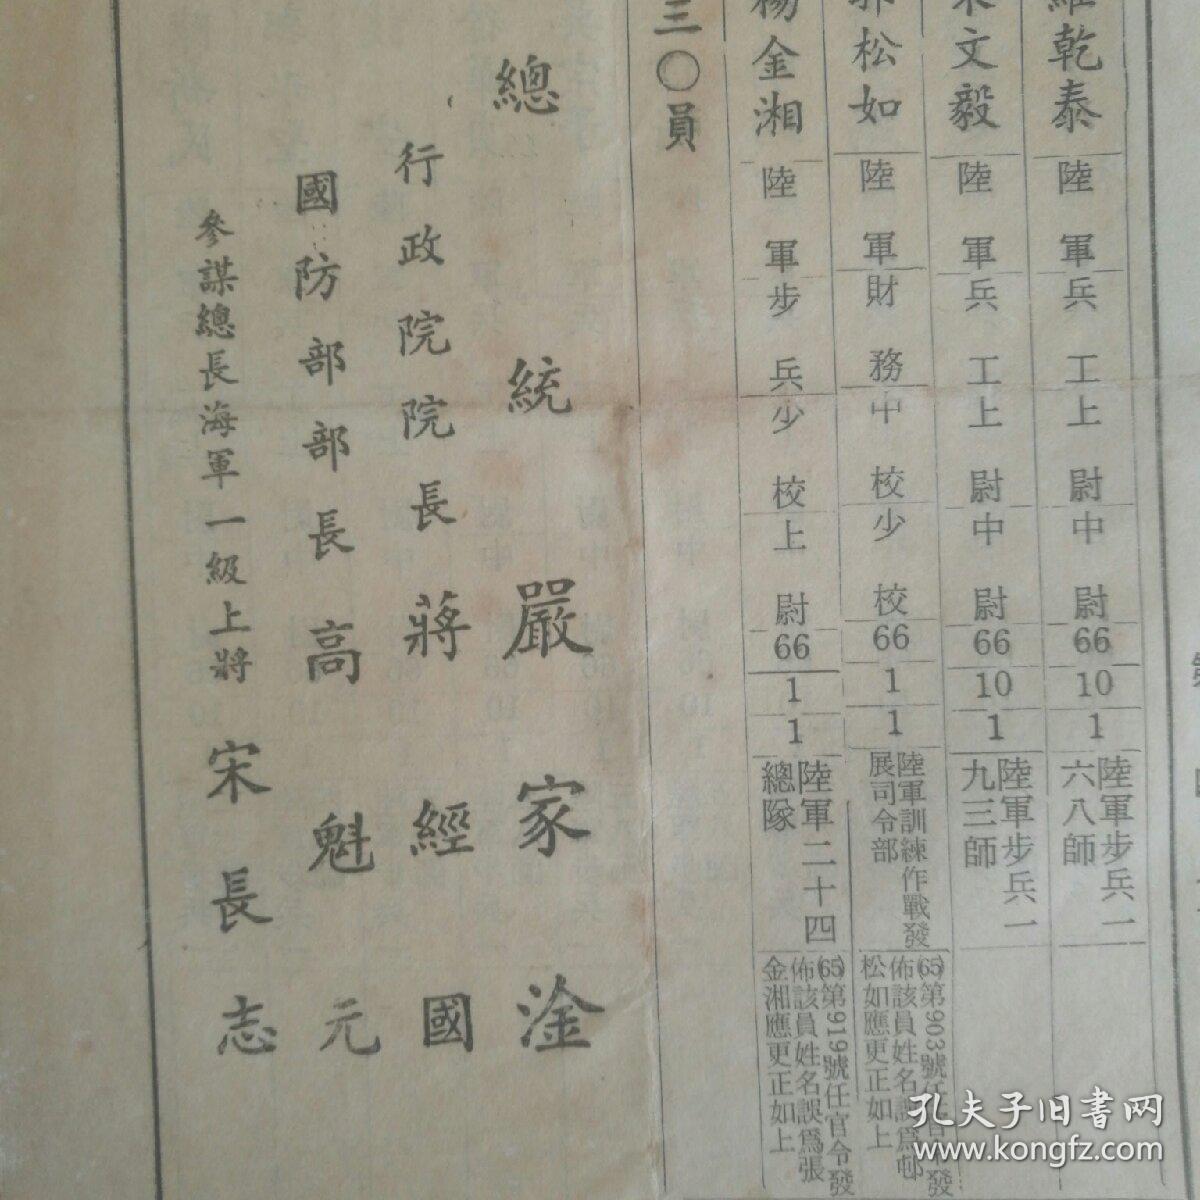 乾泰 陸軍兵工上尉中尉 66 10 1 陸軍步兵一六八師
文毅 陸軍兵工上尉中尉 66 10 1 陸軍步兵一九三師
松如 陸軍財務中校少校 66 1 1 陸軍訓練作戰發展司令部 (65)第903號任官令發佈該員姓名誤為邨松如應更正如上
楊金湘 陸軍步兵少校上尉 66 1 1 陸軍二十四總隊 (65)第919號任官令發佈該員姓名誤為張金湘應更正如上
三〇員
總統嚴家淦
行政院院長蔣經國
國防部部長高魁元
參謀總長海軍一級上將宋長志
孔夫子旧书网
www.kongfz.com